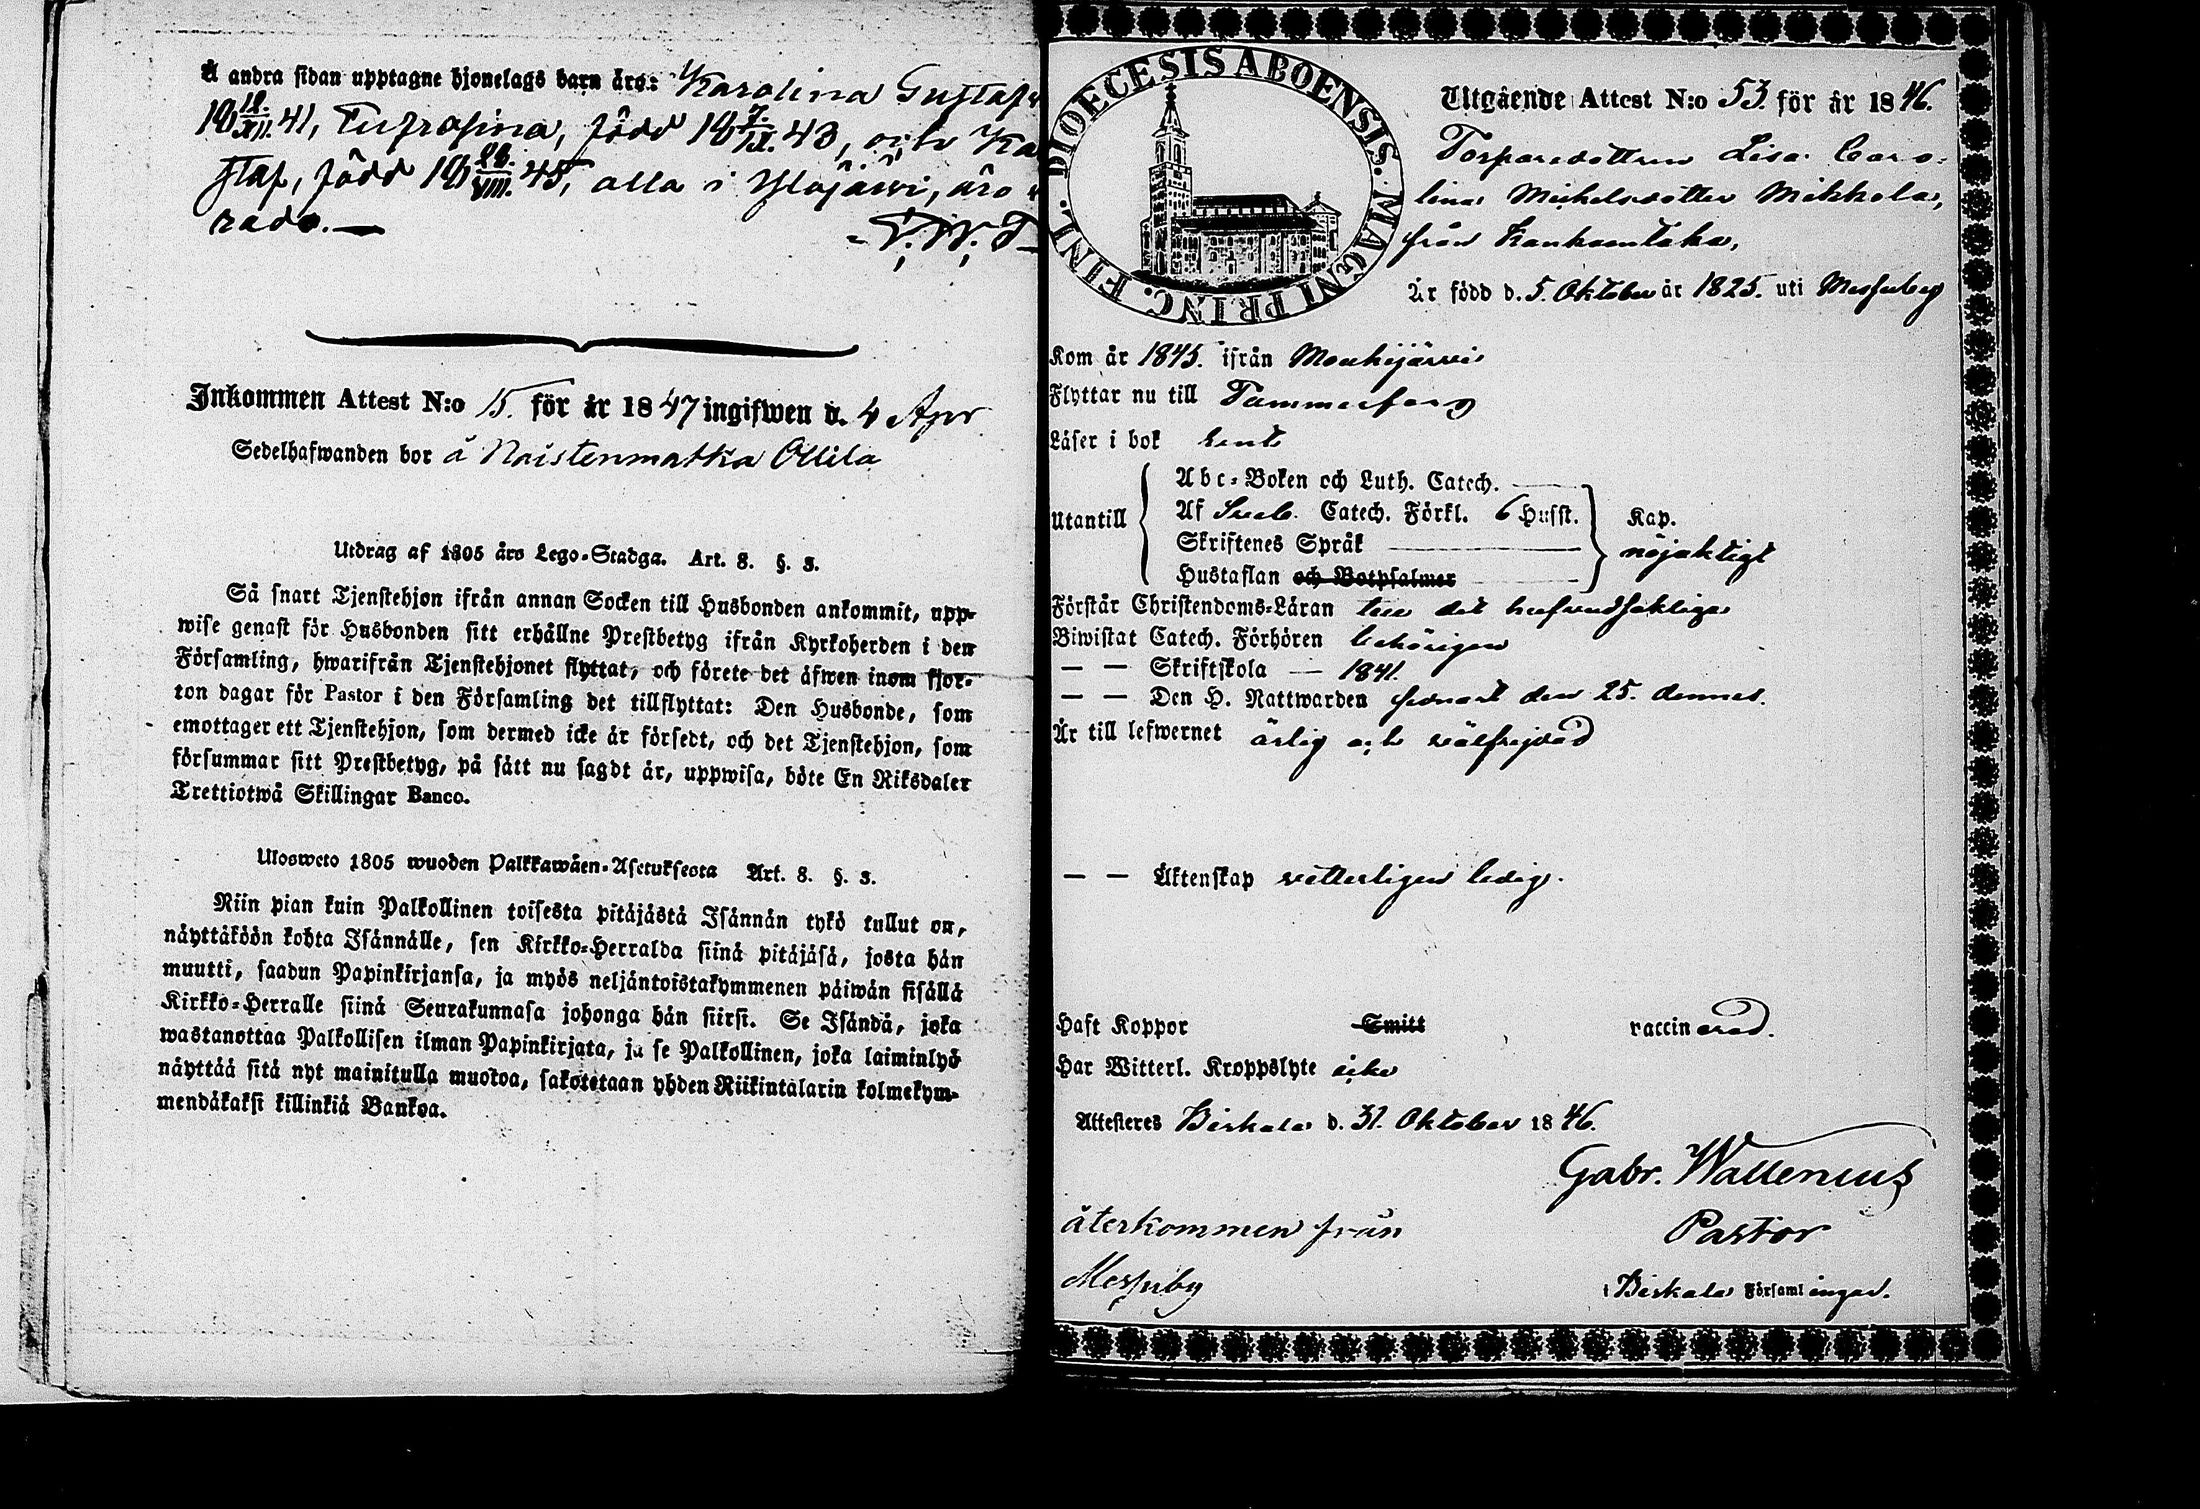 Å andra sidan upptagne hjonelags barn äro: Karolina Gustafv
18 12/XII. 41, Eufrosina, född 18 7./IX. 43, och Ka
staf, född 18 26./VIII. 45, alla i Ylöjärvi, äro
rade. —
Inkommen Attest N:o 15. för år 1847 ingifwen d. 4 Apr
Sedelhafwanden bor å Naistenmatka Ollila
Utdrag af 1805 års Lego-Stadga. Art. 8. §. 3.
Så snart Tjenstehjon ifrån annan Socken till Husbonden ankommit, upp-
wise genast för Husbonden sitt erhållne Prestbetyg ifrån Kyrkoherden i den
Församling, hwarifrån Tjenstehjonet flyttat, och förete det äfwen inom fjor-
ton dagar för Pastor i den Församling det tillflyttat: Den Husbonde, som
emottager ett Tjenstehjon, som dermed icke är försedt, och det Tjenstehjon, som
försummar sitt Prestbetyg, på sätt nu sagdt är, uppwisa, böte En Riksdaler
Trettiotwå Skillingar Banco.
Ulosweto 1805 wuoden Palkkawäen-Asetuksesta Art. 8. §. 3.
Niin pian kuin Palkollinen toisesta pitäjästä Isännän tykö tullut on,
näyttäköön kohta Isännälle, sen Kirkko-Herralda siinä pitäjäsä, josta hän
muutti, saadun Papinkirjansa, ja myös neljäntoistakymmenen päiwän sisällä
Kirkko-Herralle siinä Seurakunnasa johonga hän siirsi. Se Isändä, joka
wastanottaa Palkollisen ilman Papinkirjata, ja se Palkollinen, joka laiminlyö
näyttää sitä nyt mainitulla muotoa, sakotetaan yhden Riikintalarin kolmekym-
mendäkaksi killinkiä Bankoa.
DIOECESIS ABOENSIS. MAGNI PRINC. FINL.
Utgående Attest N:o 53. för år 1846.
Torparedottren Lisa Caro-
lina Michelsdotter Mikkola,
från Kankaantaka,
Är född d. 5. Oktober år 1825. uti Messuby
Kom år 1845. ifrån Mouhijärvi
Flyttar nu till Tammerfors
Läser i bok rent
Utantill
Abc-Boken och Luth. Catech.
Af Sveb. Catech. Förkl. 6 Hufst.
Skriftenes Språk
Hustaflan och Botpsalmer
Kap.
nöjaktigt
Förstår Christendoms-Läran till det hufvudsakliga
Biwistat Catech. Förhören behörigen
— — Skriftskola — 1841.
— — Den H. Nattwarden senast den 25. dennes.
Är till lefwernet ärlig och välfrejdad
— — Äktenskap vetterligen ledig.
Haft Koppor Smitt vaccinerad.
Har Witterl. Kroppslyte icke
Attesteres Birkala d. 31. Oktober 1846.
Gabr. Wallenius
Pastor
i Birkala Församlingar.
återkommen från
Messuby